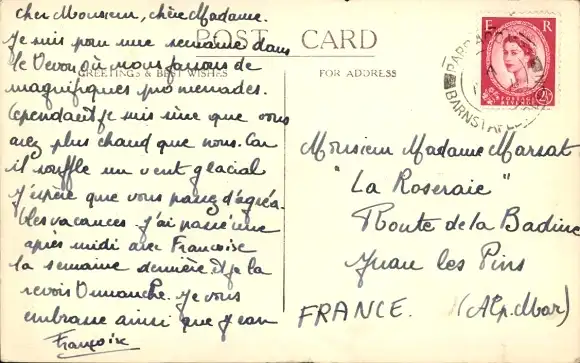 Cher Monsieur, chère Madame.
Je suis pour une semaine dans
le Devon où nous faisons de
magnifiques promenades.
Cependant je suis sûre que vous
avez plus chaud que nous. Car
il souffle un vent glacial
J'espère que vous passez d'agréa-
bles vacances. J'ai passé une
après midi avec Françoise
la semaine dernière et je la
revois Dimanche. Je vous
embrasse ainsi que Jean
Françoise
POST CARD
GREETINGS & BEST WISHES
FOR ADDRESS
E R
POSTAGE
REVENUE
2½
PARRACOMBE
BARNSTAPLE
Monsieur Madame Marsat
"La Roseraie"
Route de la Badine
Juan les Pins
FRANCE. (Alp. Mar)